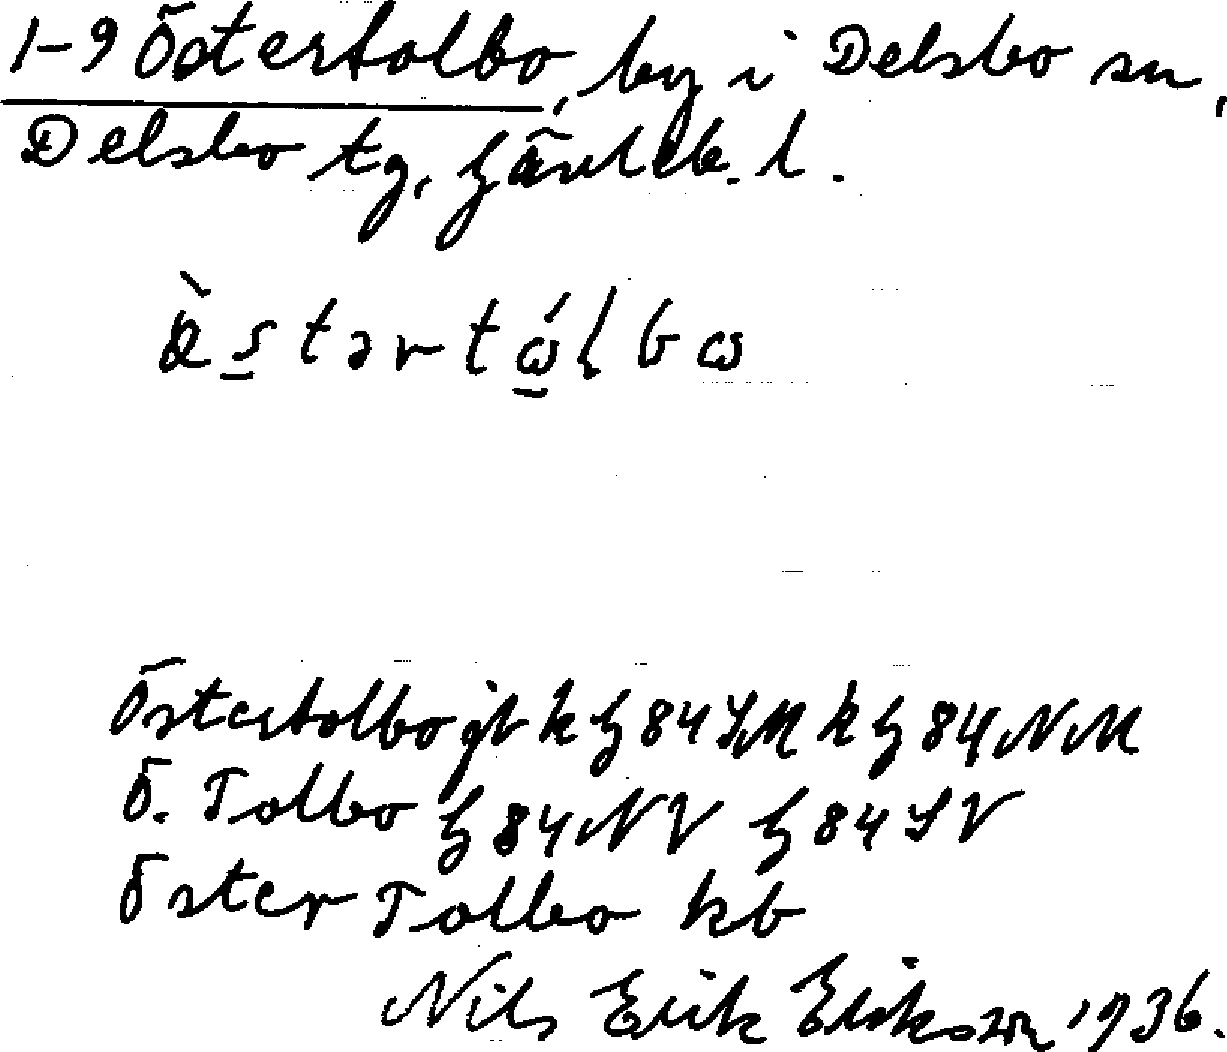 1-9 Östertolbo, by i Delsbo sn,
Delsbo tg, Gävleb. l.
Östertolbo jb k G 84 SM k G 84 NM
Ö. Tolbo G 84 NV G 84 SV
Öster Tolbo kb
Nils Erik Erikson 1936.